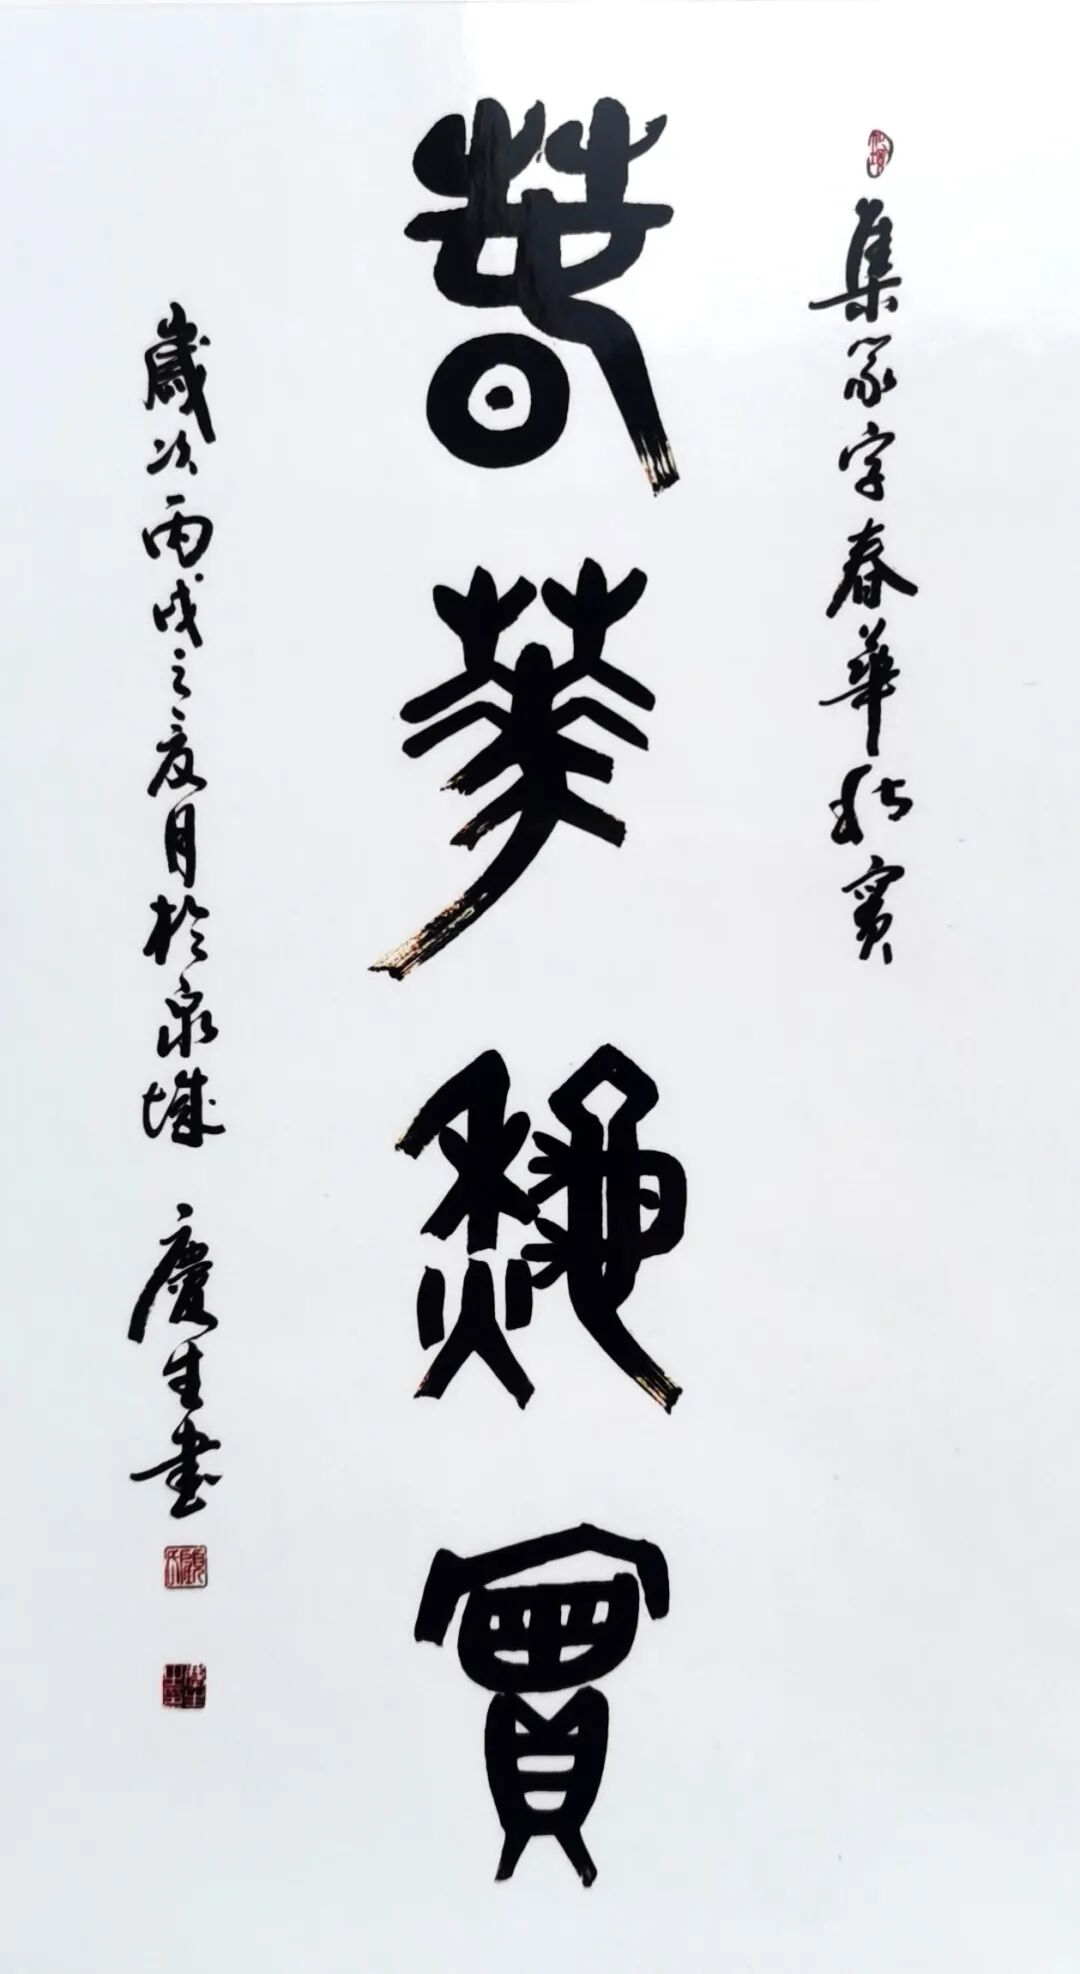 集篆字春華秋實
春華秋實
歲次丙戌之夏月於泉城 慶生書